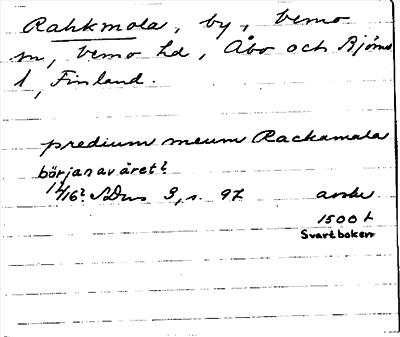 Rahkmala, by, Vemo
sn, Vemo hd, Åbo och Björneb
l, Finland.
predium meum Rackamala
början av året?
12/16? SDns 3, s. 97 avskr
1500 t
Svartboken